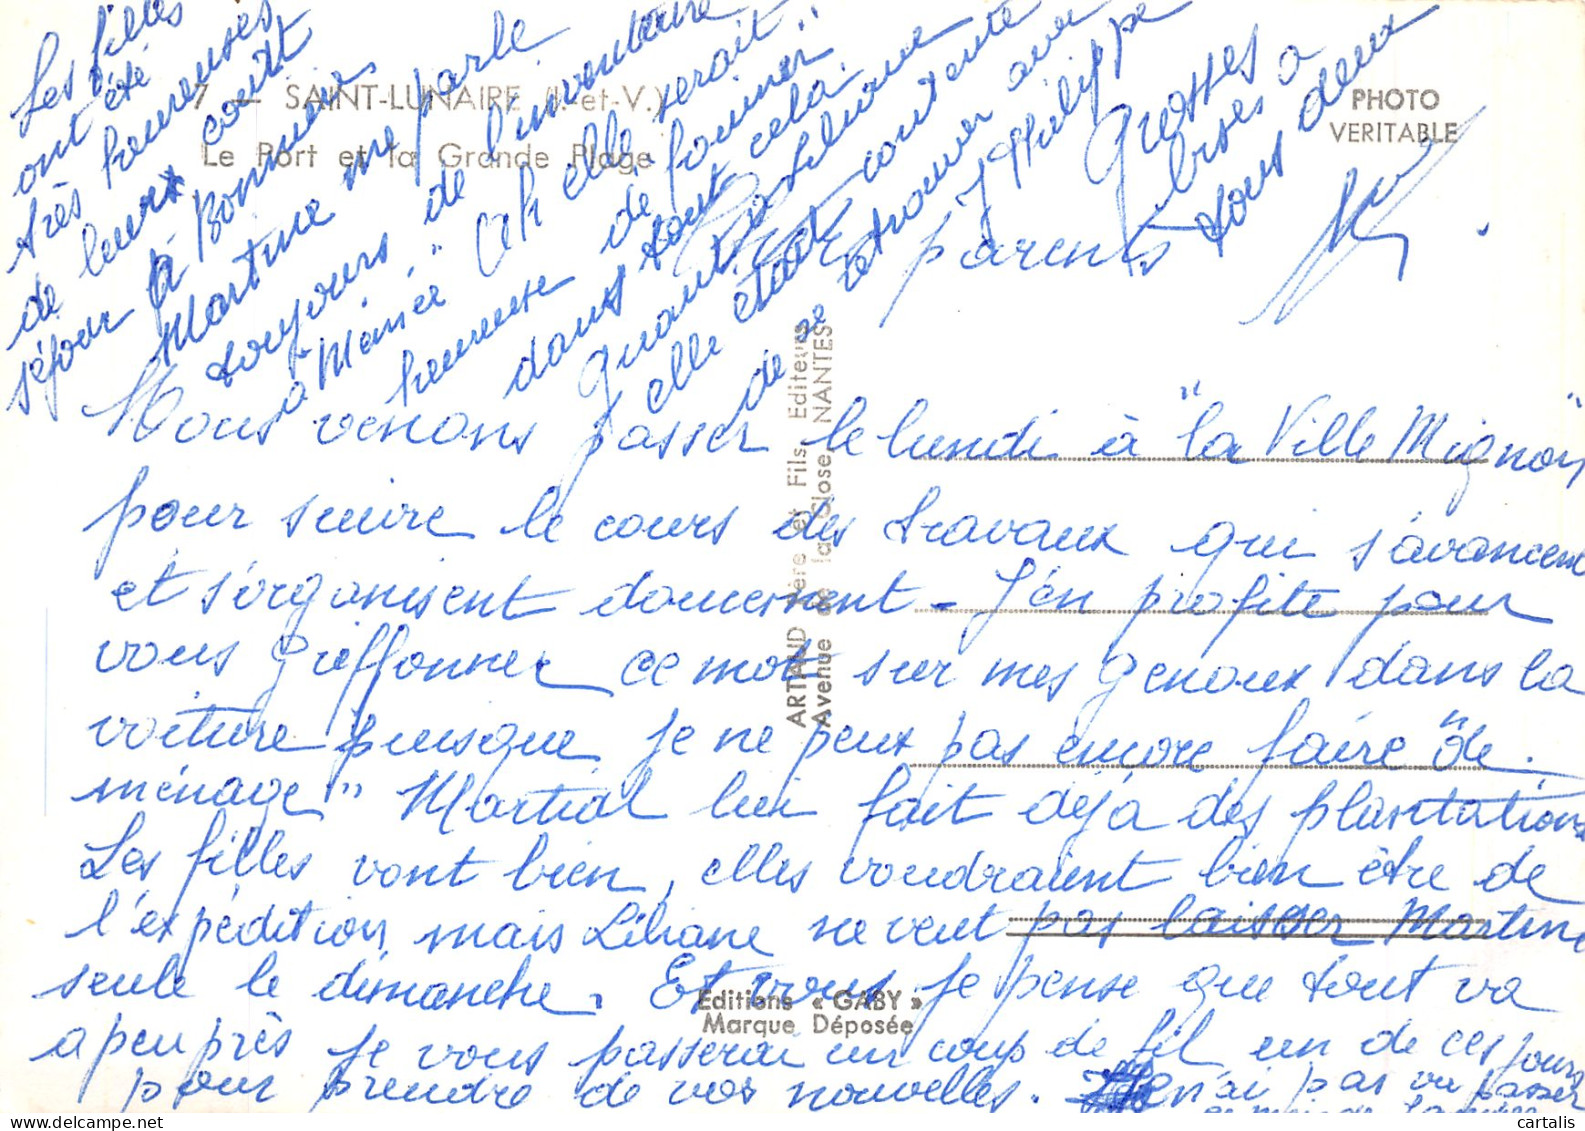 7 — SAINT-LUNAIRE (I.-et-V.)
Le Port et la Grande Plage
PHOTO
VERITABLE
Chers parents
Nous venons passer le lundi à "la Ville Mignon"
pour suivre le cours des travaux qui s'avancent
et s'organisent doucement - J'en profite pour
vous griffonner ce mot sur mes genoux dans la
voiture puisque je ne peux pas encore faire "de
ménage" Martial lui fait déjà des plantations
Les filles vont bien, elles voudraient bien être de
l'expédition, mais Liliane ne veut pas laisser Martine
seule le dimanche. Et vous je pense que tout va
a peu près je vous passerai un coup de fil un de ces jours
pour prendre de vos nouvelles. Je n'ai pas vu passer
ce mois de
Les filles
ont été
très heureuses
de leur court
séjour à Bonnieu
Martine me parle
toujours de l'inventaire
à "Mémée" Ah elle serait
heureuse de fouiner"
dans tout cela.
Quant à Liliane
elle était contente
de se retrouver avec
J Philippe
Grosses
bises à
tous deux
ARTAUD Père et Fils Editeurs
Avenue de la Close NANTES
Editions « GABY »
Marque Déposée
cartalis
delcampe.net